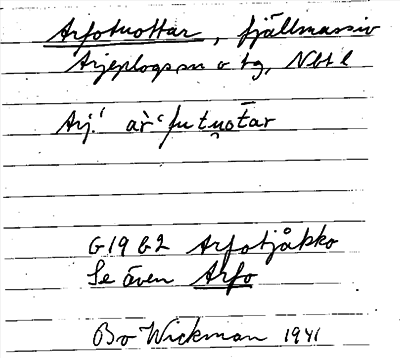 Arfotuottar, fjällmassiv
Arjeplogs sn o tg, Nbt l
Arj.
G 19 G2 Arfotjåkko
Se även Arfo
Bo Wickman 1941